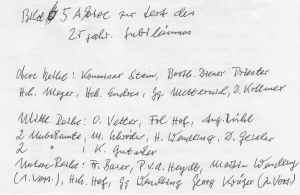 Bild 5 zur Text des
25 jähr. Jubiläums
Obere Reihe: Kommissar Stein, Diener Priester
Hch. Meyer, Hch. Endres, Gg. Metternich, D. Kollmer
Mittl Reihe: O. Vetter, Frl Hof, Aug. Bühl
2 Unbekannte, M. Schröder, H. Wendling, D. Geyler
2 " K. Gutader
Untere Reihe: Fr. Bauer, P. v. d. Heydt, Martin Wendling
(1. Vors.), Hch. Hof, Gg Wendling Georg Kröger (2. Vors.)